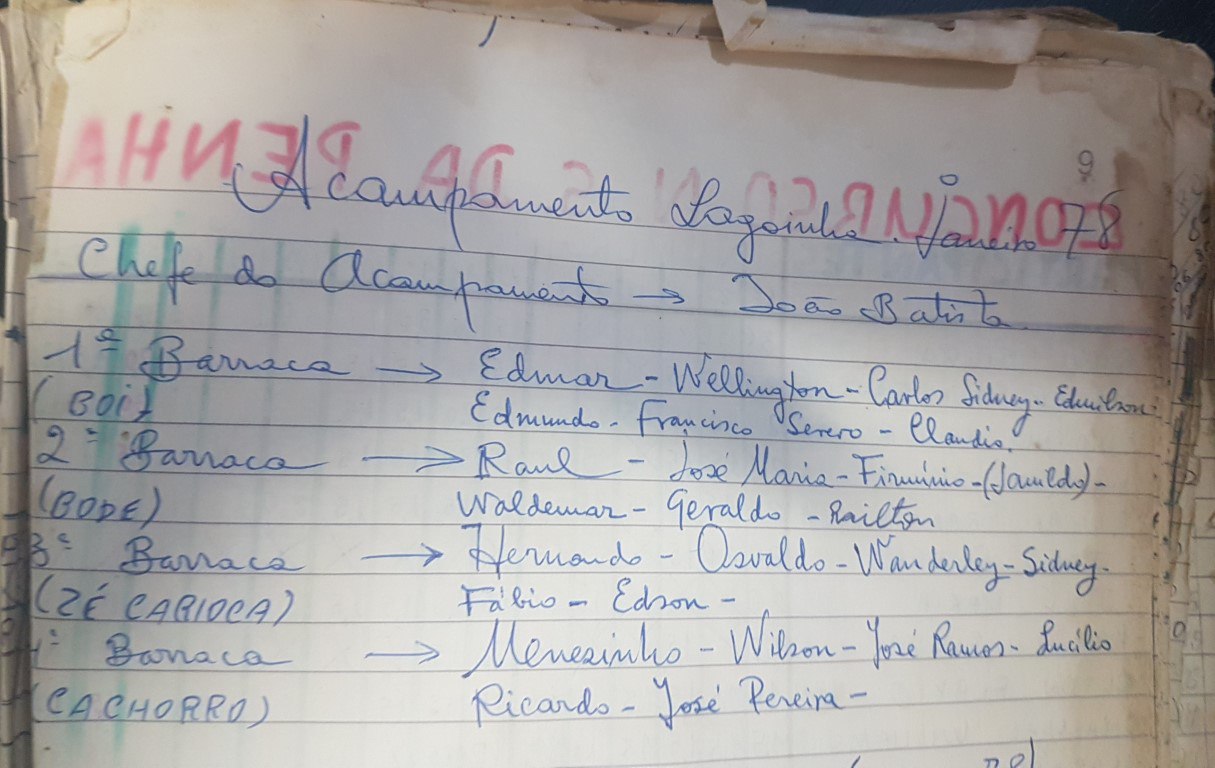 9
Acampamento Lagoinha. Janeiro 78
Chefe do Acampamento → João Batista
1ª Barraca → Edmar - Wellington - Carlos Sidney - Edmilson
(BOI) Edmundo - Francisco Severo - Claudio
2ª Barraca → Raul - José Maria - Firmínio - (Jamildo) -
(BODE) Waldemar - Geraldo - Railton
3ª Barraca → Hernando - Osvaldo - Wanderley - Sidney -
(ZÉ CARIOCA) Fábio - Edson -
Barraca → Menezinho - Wilson - José Ramos - Lucílio
(CACHORRO) Ricardo - José Pereira -